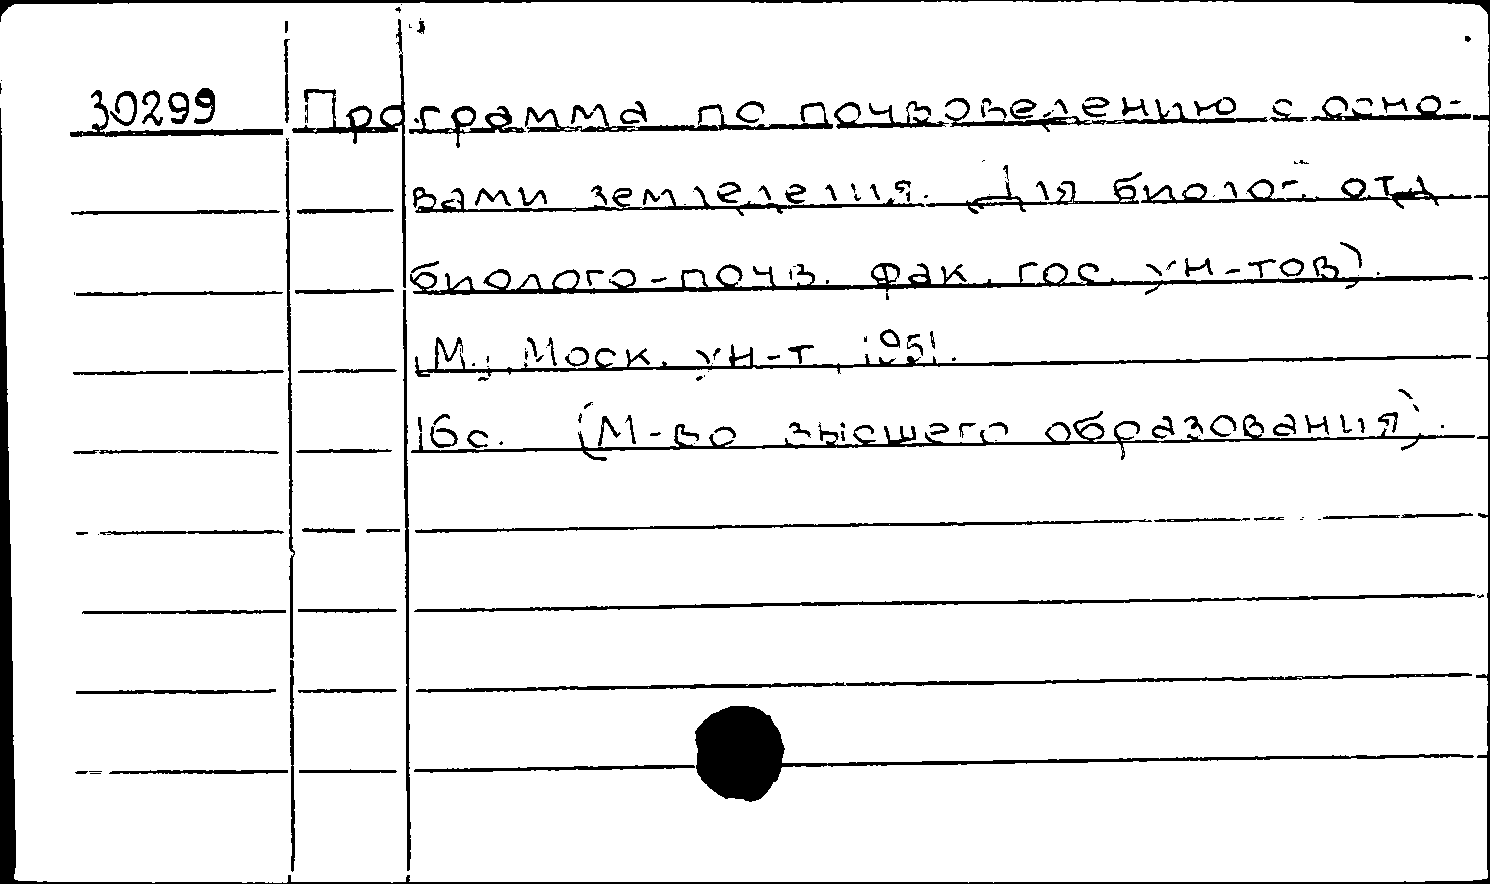 30299 Программа по почвоведению с осно-
вами земледелия. Для биолог. отд.
биолого-почв. фак. гос. ун-тов).
[М.], Моск. ун-т, 1951.
16с. (М-во высшего образования).